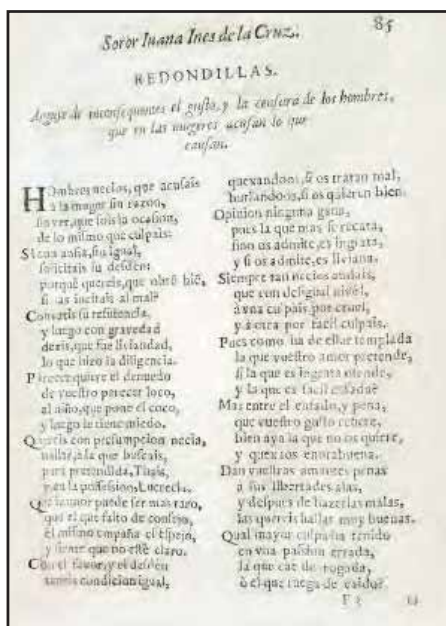 Soror Iuana Ines de la Cruz.
85
REDONDILLAS.
Arguye de inconsequentes el gusto, y la censura de los hombres,
que en las mugeres acusan lo que
causan.
HOmbres necios, que acusais
a la muger sin razon,
sin ver, que sois la ocasion,
de lo mismo que culpais:
Si con ansia, sin igual,
solicitais su desden:
porquè quereis, que obrē biē,
si las incitais al mal?
Combatis su resistencia,
y luego con gravedad
dezis, que fue liviandad,
lo que hizo la diligencia.
Parecer quiere el denuedo
de vuestro parecer loco,
al niño, que pone el coco,
y luego le tiene miedo.
Quereis con presumpcion necia,
hallar, a la que buscais,
para pretendida, Thais,
y en la possession, Lucrecia.
Què humor puede ser mas raro,
que el que falto de consejo,
èl mismo empaña el espejo,
y siente que no estè claro.
Con el favor, y el desden
teneis condicion igual,
quexandoos, si os tratan mal,
burlandoos, si os quieren bien.
Opinion ninguna gana,
pues la que mas se recata,
sino os admite, es ingrata,
y si os admite, es liviana.
Siempre tan necios andais,
que con desigual nivel,
à vna culpais por cruel,
y à otra por facil culpais.
Pues como ha de estar templada
la que vuestro amor pretende,
si la que es ingrata ofende,
y la que es facil enfada?
Mas entre el enfado, y pena,
que vuestro gusto refiere,
bien aya la que no os quiere,
y quexaos enorabuena.
Dan vuestras amantes penas
à sus libertades alas,
y despues de hazerlas malas,
las quereis hallar muy buenas.
Qual mayor culpa ha tenido
en vna passion errada,
la que cae de rogada,
ò el que ruega de caido?
F 3